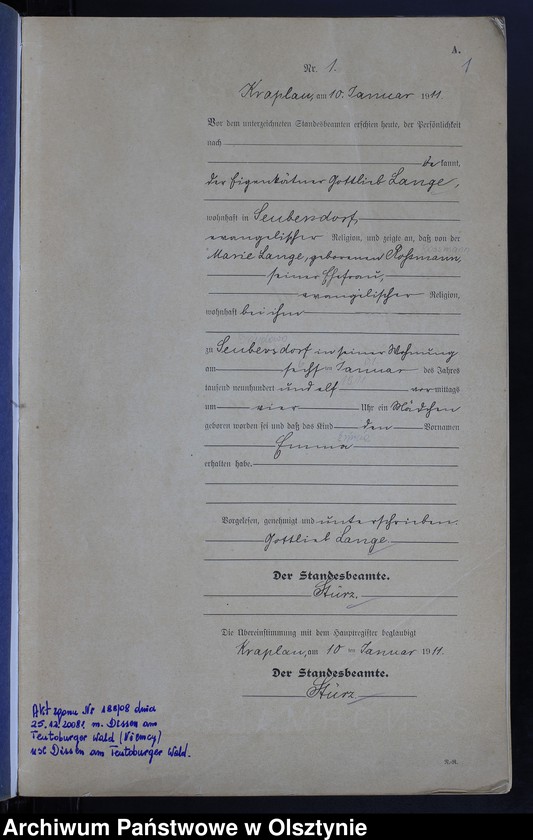 A.
Nr. 1.
1
Kraplau, am 10. Januar 1911.
Vor dem unterzeichneten Standesbeamten erschien heute, der Persönlichkeit
nach
bekannt,
der Eigenkätner Gottlieb Lange,
wohnhaft in Seubersdorf,
evangelischer Religion, und zeigte an, daß von der
Marie Lange, geborenen Roßmann,
seiner Ehefrau,
evangelischer Religion,
wohnhaft bei ihm
zu Seubersdorf in seiner Wohnung
am sechsten Januar des Jahres
tausend neunhundert und elf vormittags
um vier Uhr ein Mädchen
geboren worden sei und daß das Kind den Vornamen
Emma
erhalten habe.
Vorgelesen, genehmigt und unterschrieben.
Gottlieb Lange.
Der Standesbeamte.
Stürz.
Die Übereinstimmung mit dem Hauptregister beglaubigt
Kraplau, am 10ten Januar 1911.
Der Standesbeamte.
Stürz
Akt zgonu Nr 188/08 dnia
25.12.2008r m. Dissen am
Teutoburger Wald (Niemcy)
USC Dissen am Teutoburger Wald.
Archiwum Państwowe w Olsztynie